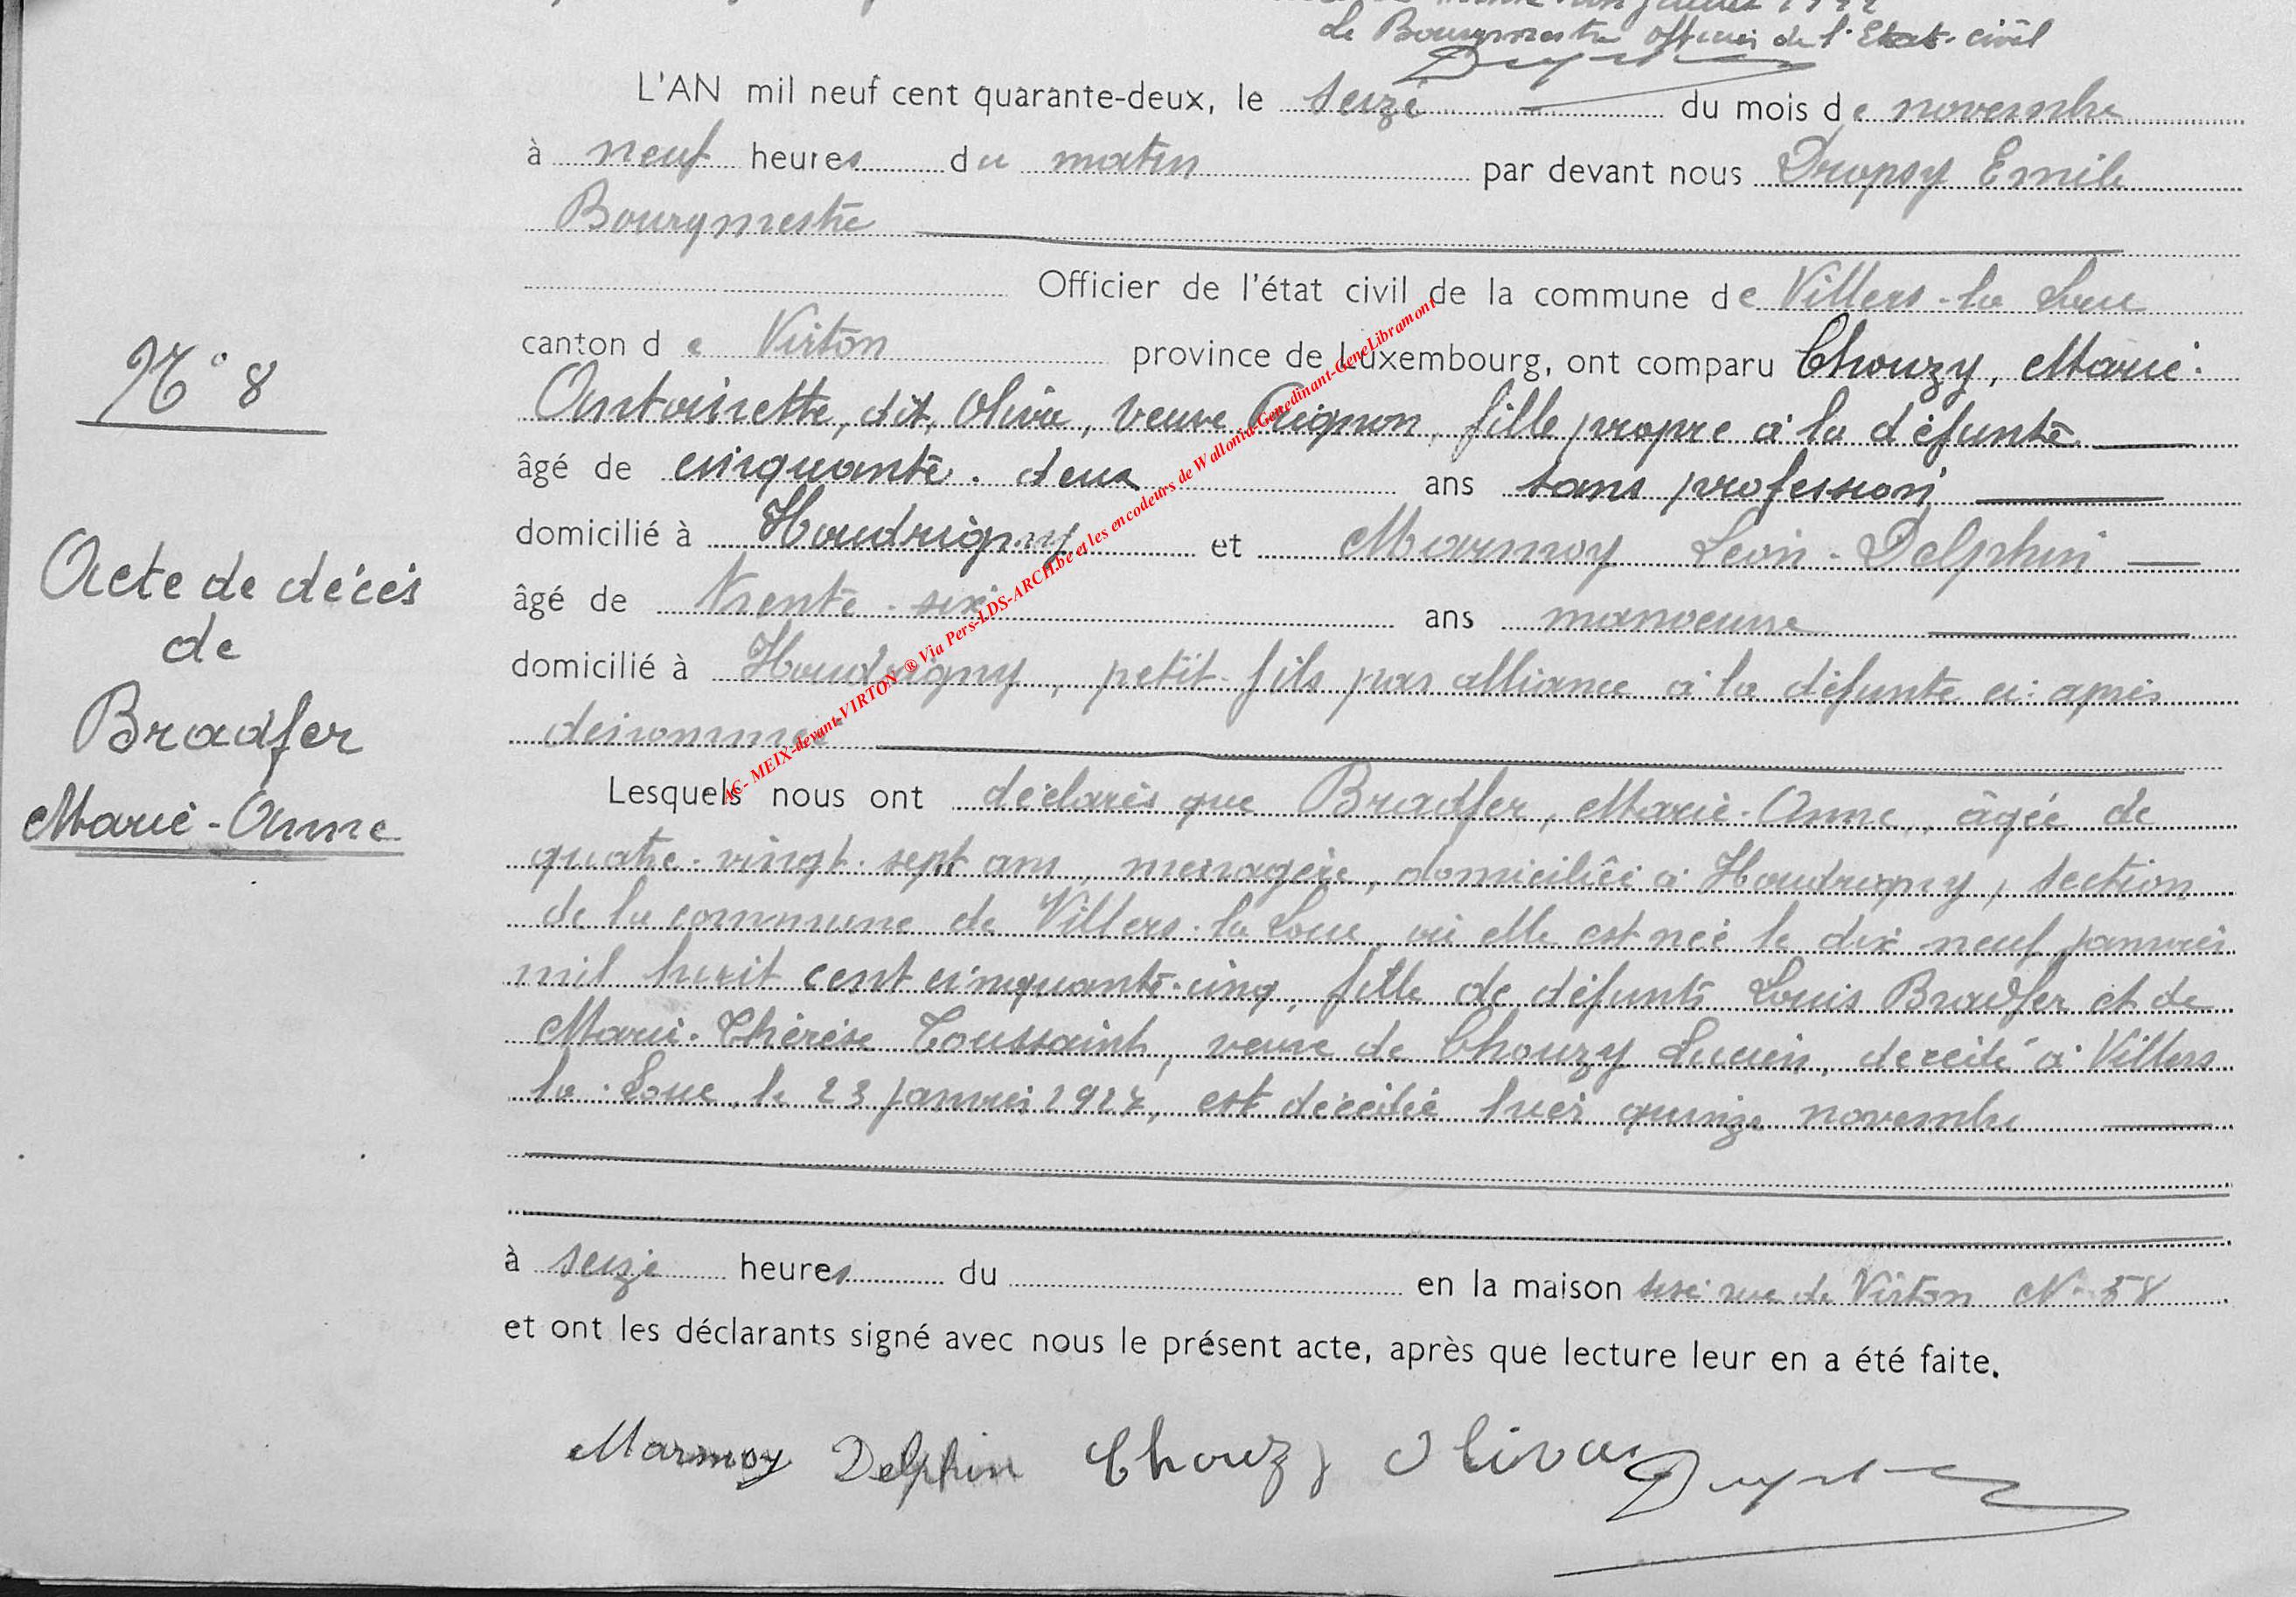 Le Bourgmestre officier de l'Etat-civil
L'AN mil neuf cent quarante-deux, le seize du mois de novembre
à neuf heures du matin par devant nous Dropsy Emile
Bourgmestre
Officier de l'état civil de la commune de Villers-la Loue
canton de Virton province de Luxembourg, ont comparu Chouzy, Marie-
N° 8
Antoinette, dit, Oliva, veuve Guignon, fille propre à la défunte
âgé de cinquante-deux ans sans profession
domicilié à Houdrigny et Marmoy Léon-Delphin
Acte de décès
âgé de trente-six ans manoeuvre
de
domicilié à Houdrigny, petit-fils par alliance à la défunte ci-après
Bradfer
dénommée
Marie-Anne
Lesquels nous ont déclarés que Bradfer, Marie-Anne, âgée de
quatre-vingt-sept ans, ménagère, domiciliée à Houdrigny, section
de la commune de Villers-la Loue, où elle est née le dix neuf janvier
mil huit cent cinquante-cinq, fille de défunts Louis Bradfer et de
Marie-Thérèse Toussaint, veuve de Chouzy Lucien, décédé à Villers
la-Loue, le 23 janvier 1927, est décédée hier quinze novembre
à seize heures du en la maison sise rue de Virton N° 58
et ont les déclarants signé avec nous le présent acte, après que lecture leur en a été faite.
Marmoy Delphin Chouzy Oliva
AC- MEIX-devant-VIRTON ® Via Pers-LDS-ARCH.be et les encodeurs de Wallonia-Genedinant-GeneLibramont